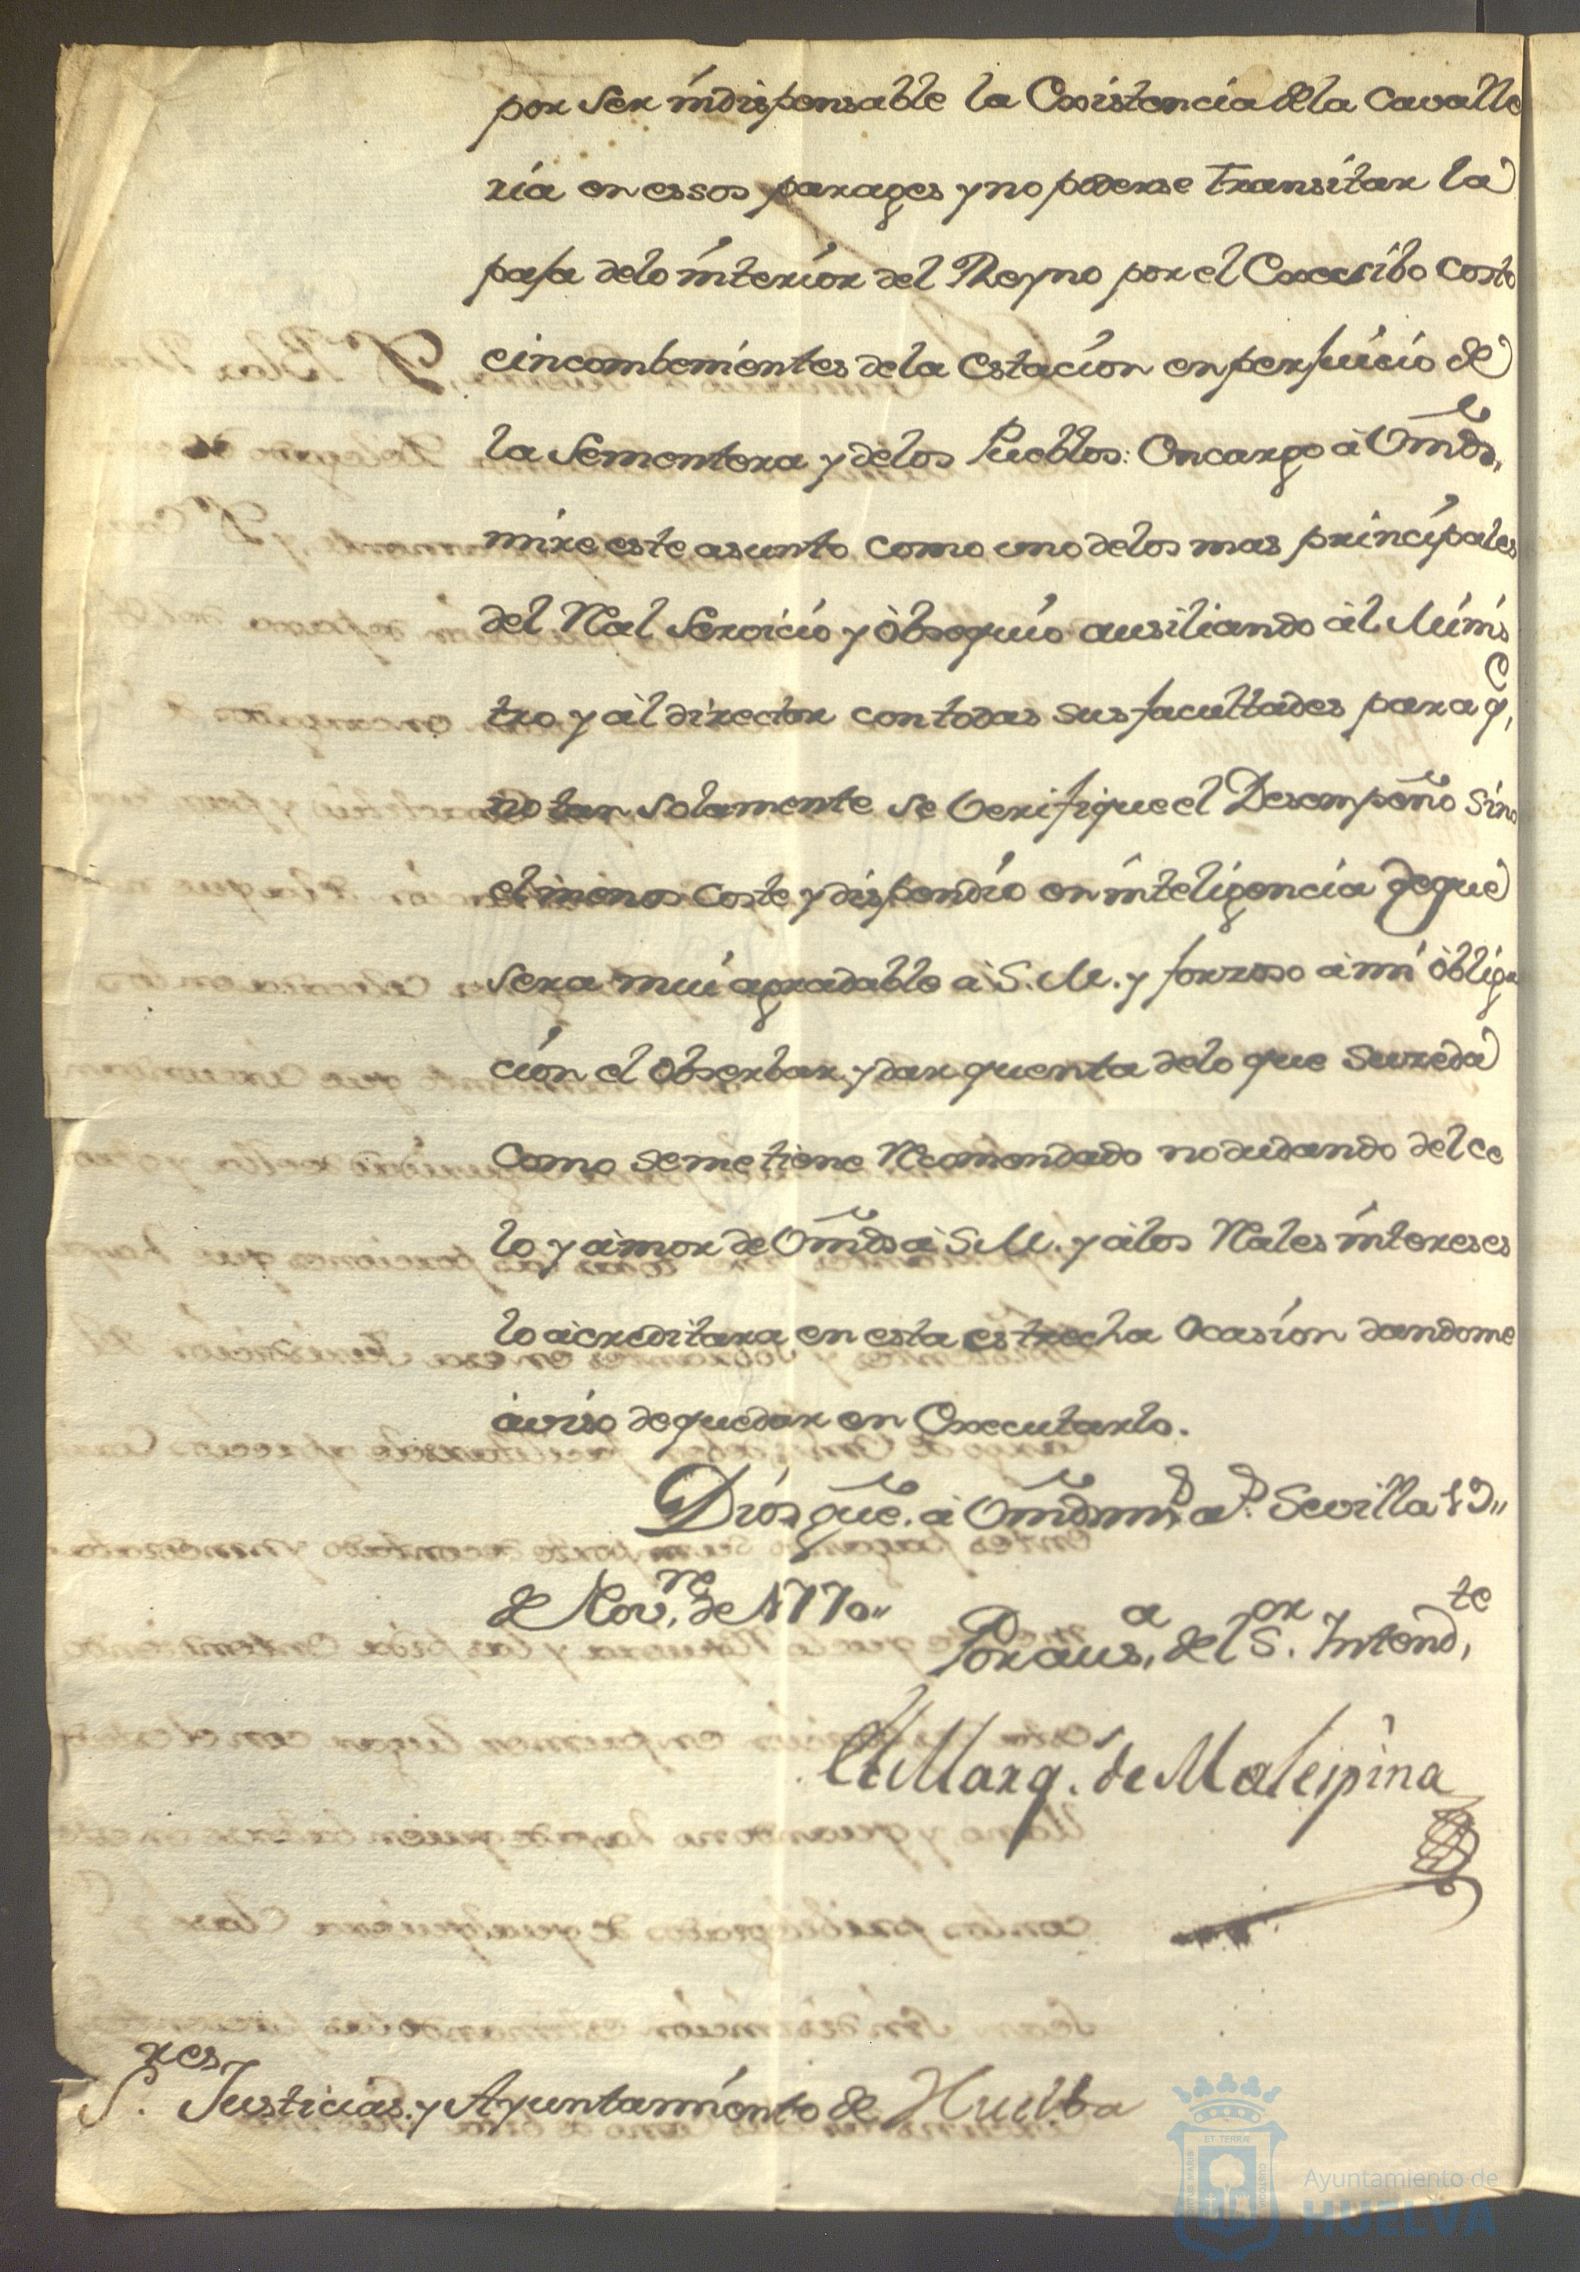 por ser indispensable la Existencia de la Cavalle
ria en essos parages y no poderse transitar la
paja de lo interior del Reyno por el Excesibo costo
e incombenientes de la estacion en perjuicio de
la Sementera y de los Pueblos: Encargo à Vmds,
mire este asunto como uno de los mas principales
del Ral Servicio y òbsequio ausiliando àl Minis
tro y àl director con todas sus facultades para q,e
no tan solamente se Verifique el Desempeño sino
el menos coste y dispendio en inteligencia de que
sera mui agradable à S. M. y forzoso à mi òbliga
cion el Obserbar y dar quenta de lo que Suzeda
como se me tiene Recomendado no dudando del ce
lo y àmor de Vmds à S.M. y à los Rales intereses
lo àcreditara en esta estrecha Ocasion dandome
àviso de quedar en Executarlo.
Dios gue. à Vmds m,s a,s Sevilla 19,,
de Nov,re de 1770,,
Por aus,a del S.or Intend,te
El Marq.s de Malespina
S.res Justicias y Ayuntamiento de Huelba
ET TERRÆ
Ayuntamiento de
HUELVA